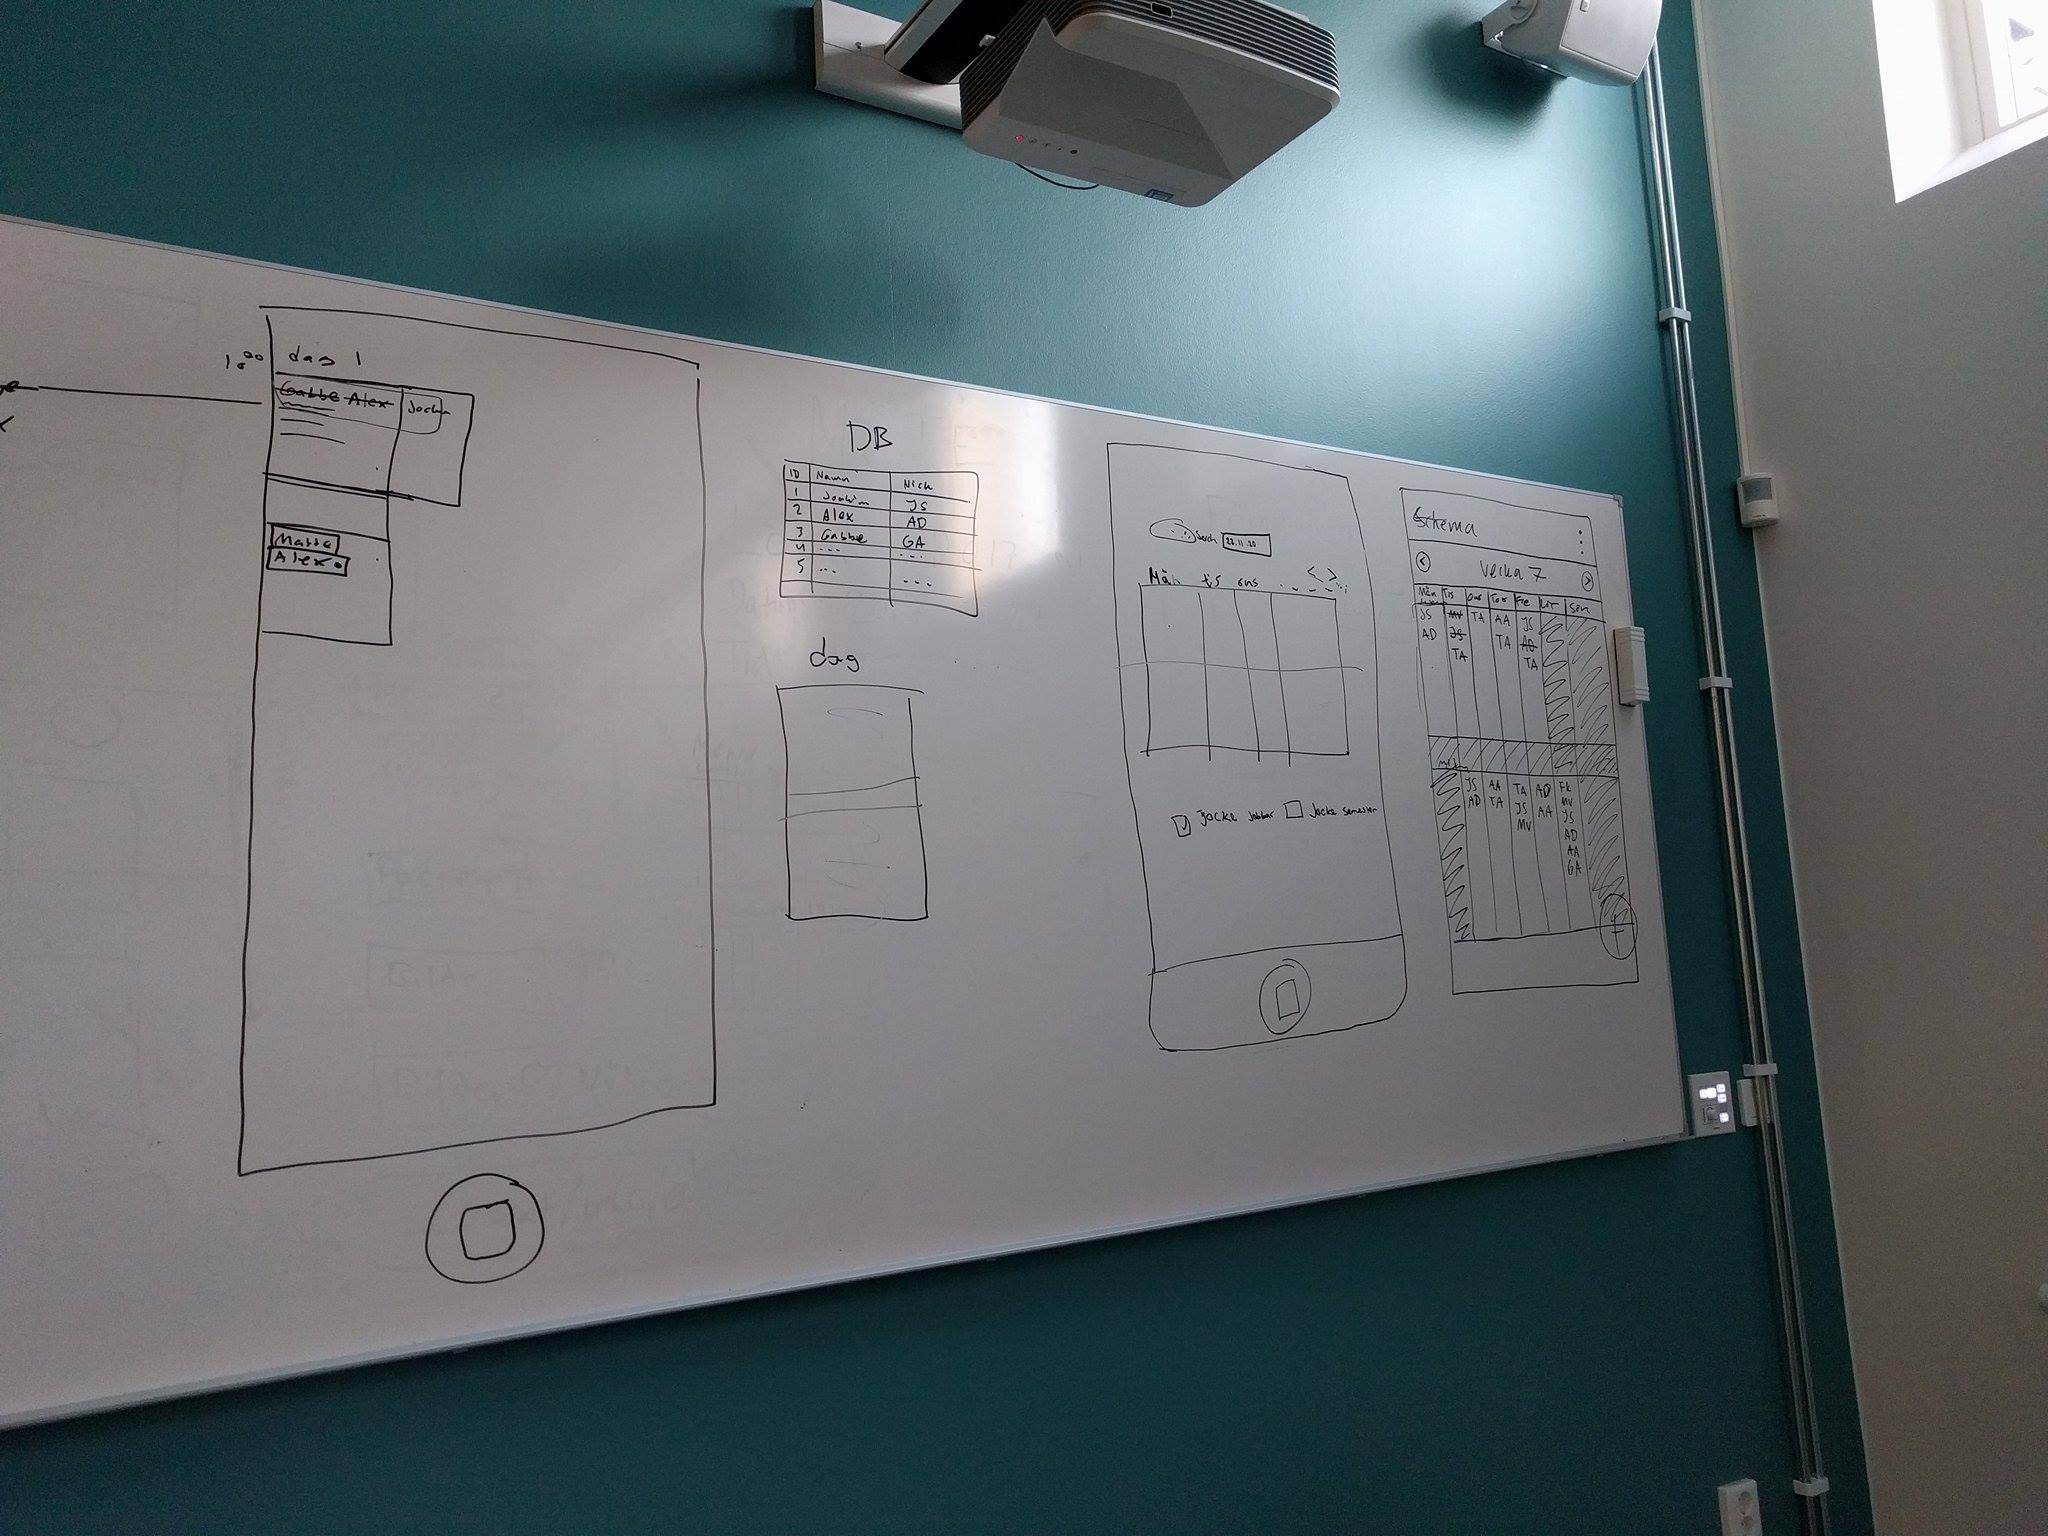 dag 1
Gabbe Alex
Matte
Alex
DB
ID Namn Nick
1 Joakim JS
2 Alex AD
3 Gabbe GA
4 --- ---
5 --- ---
dag
Serch 22.11.20
Mån tis ons - - -
< >
Jocke Jobbar Jocke Semester
Schema
< Vecka 7 >
Mån Tis Ons Tor Fre Lör Sön
JS MV TA AA JS
AD JS TA AD
TA TA
JS AA TA AD FK
AD TA JS AA MV
MV JS
AD
AA
GA
+